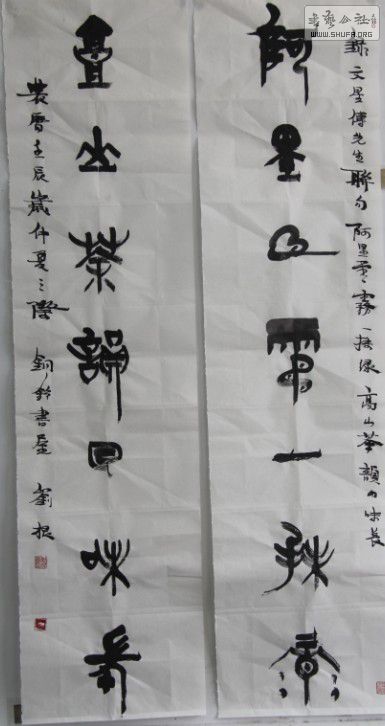 書藝公社
www.SHUFA.ORG
錄文星傅先生聯句阿里雲霧一抹绿高山茶韻回味長
阿里云霧一抹綠
高山茶韻回味長
農曆壬辰歲仲夏之際 銅鈴書屋 劉根